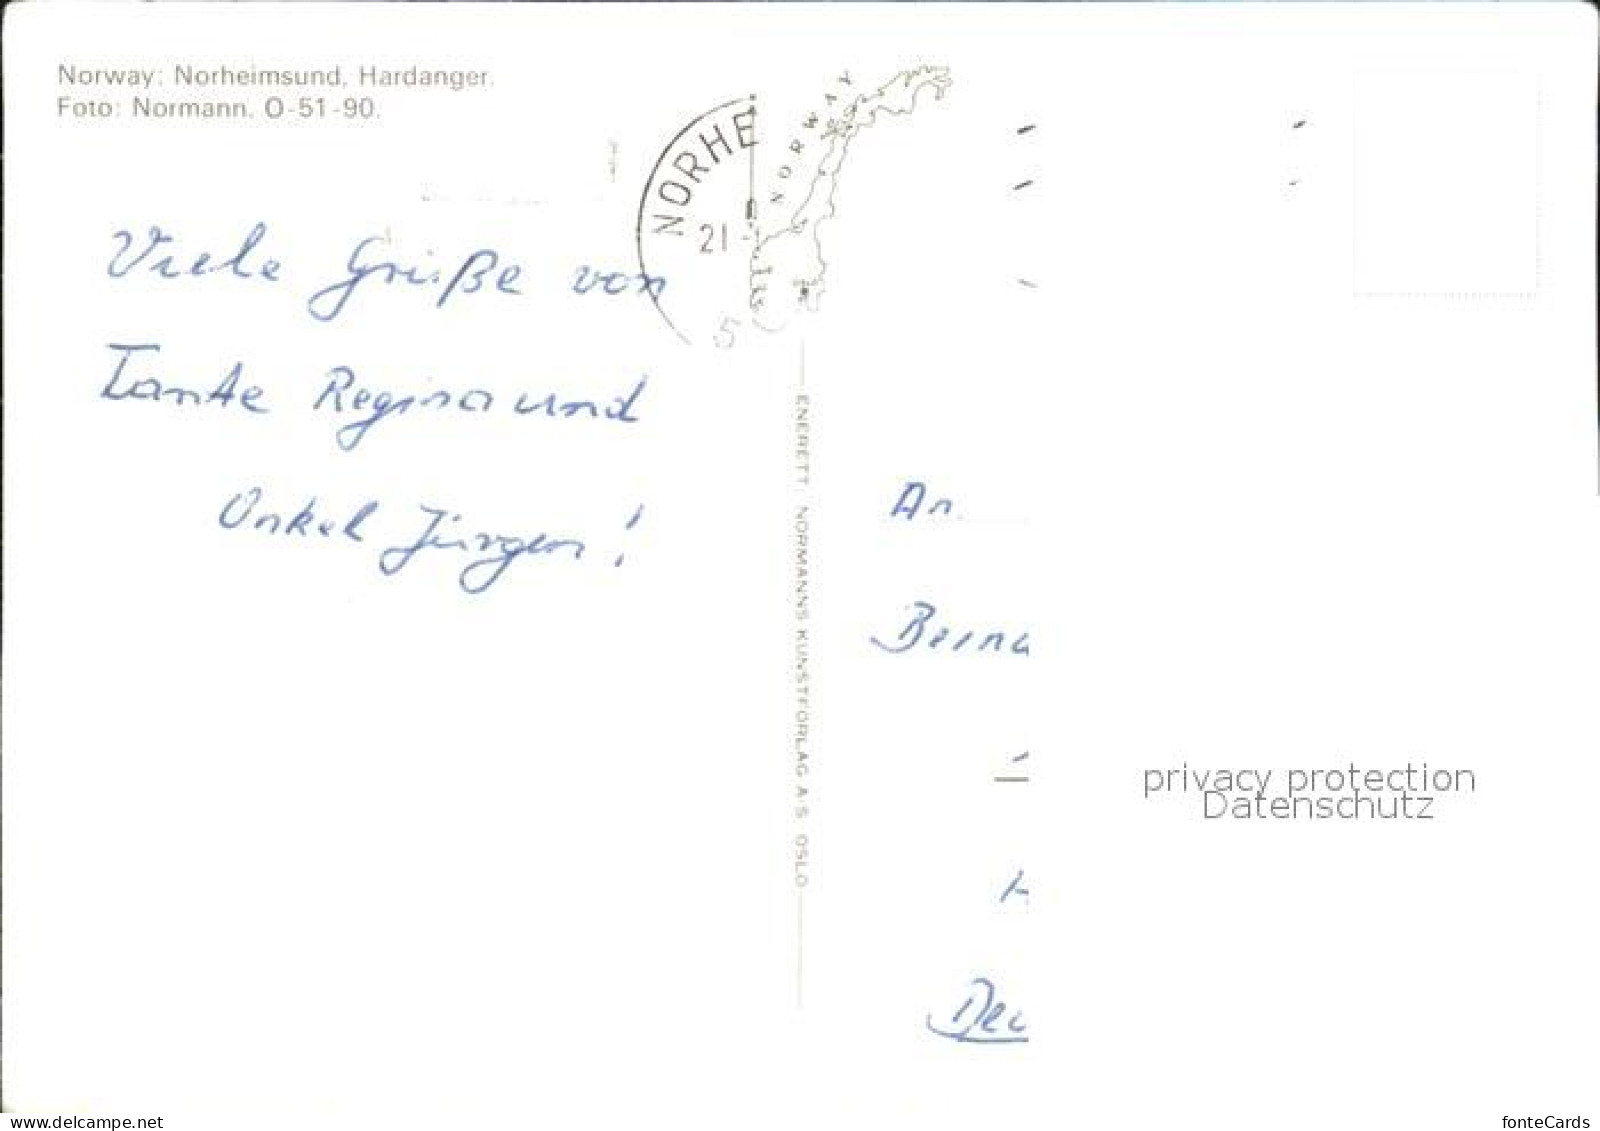 Norway: Norheimsund, Hardanger.
Foto: Normann. O-51-90.
NORHE
21
5
NORWAY
Viele Grüße von
Tante Regina und
Onkel Jürgen!
ENERETT NORMANNS KUNSTFORLAG A/S OSLO
An
Berna
H
Deu
privacy protection
Datenschutz
www.delcampe.net
fonteCards